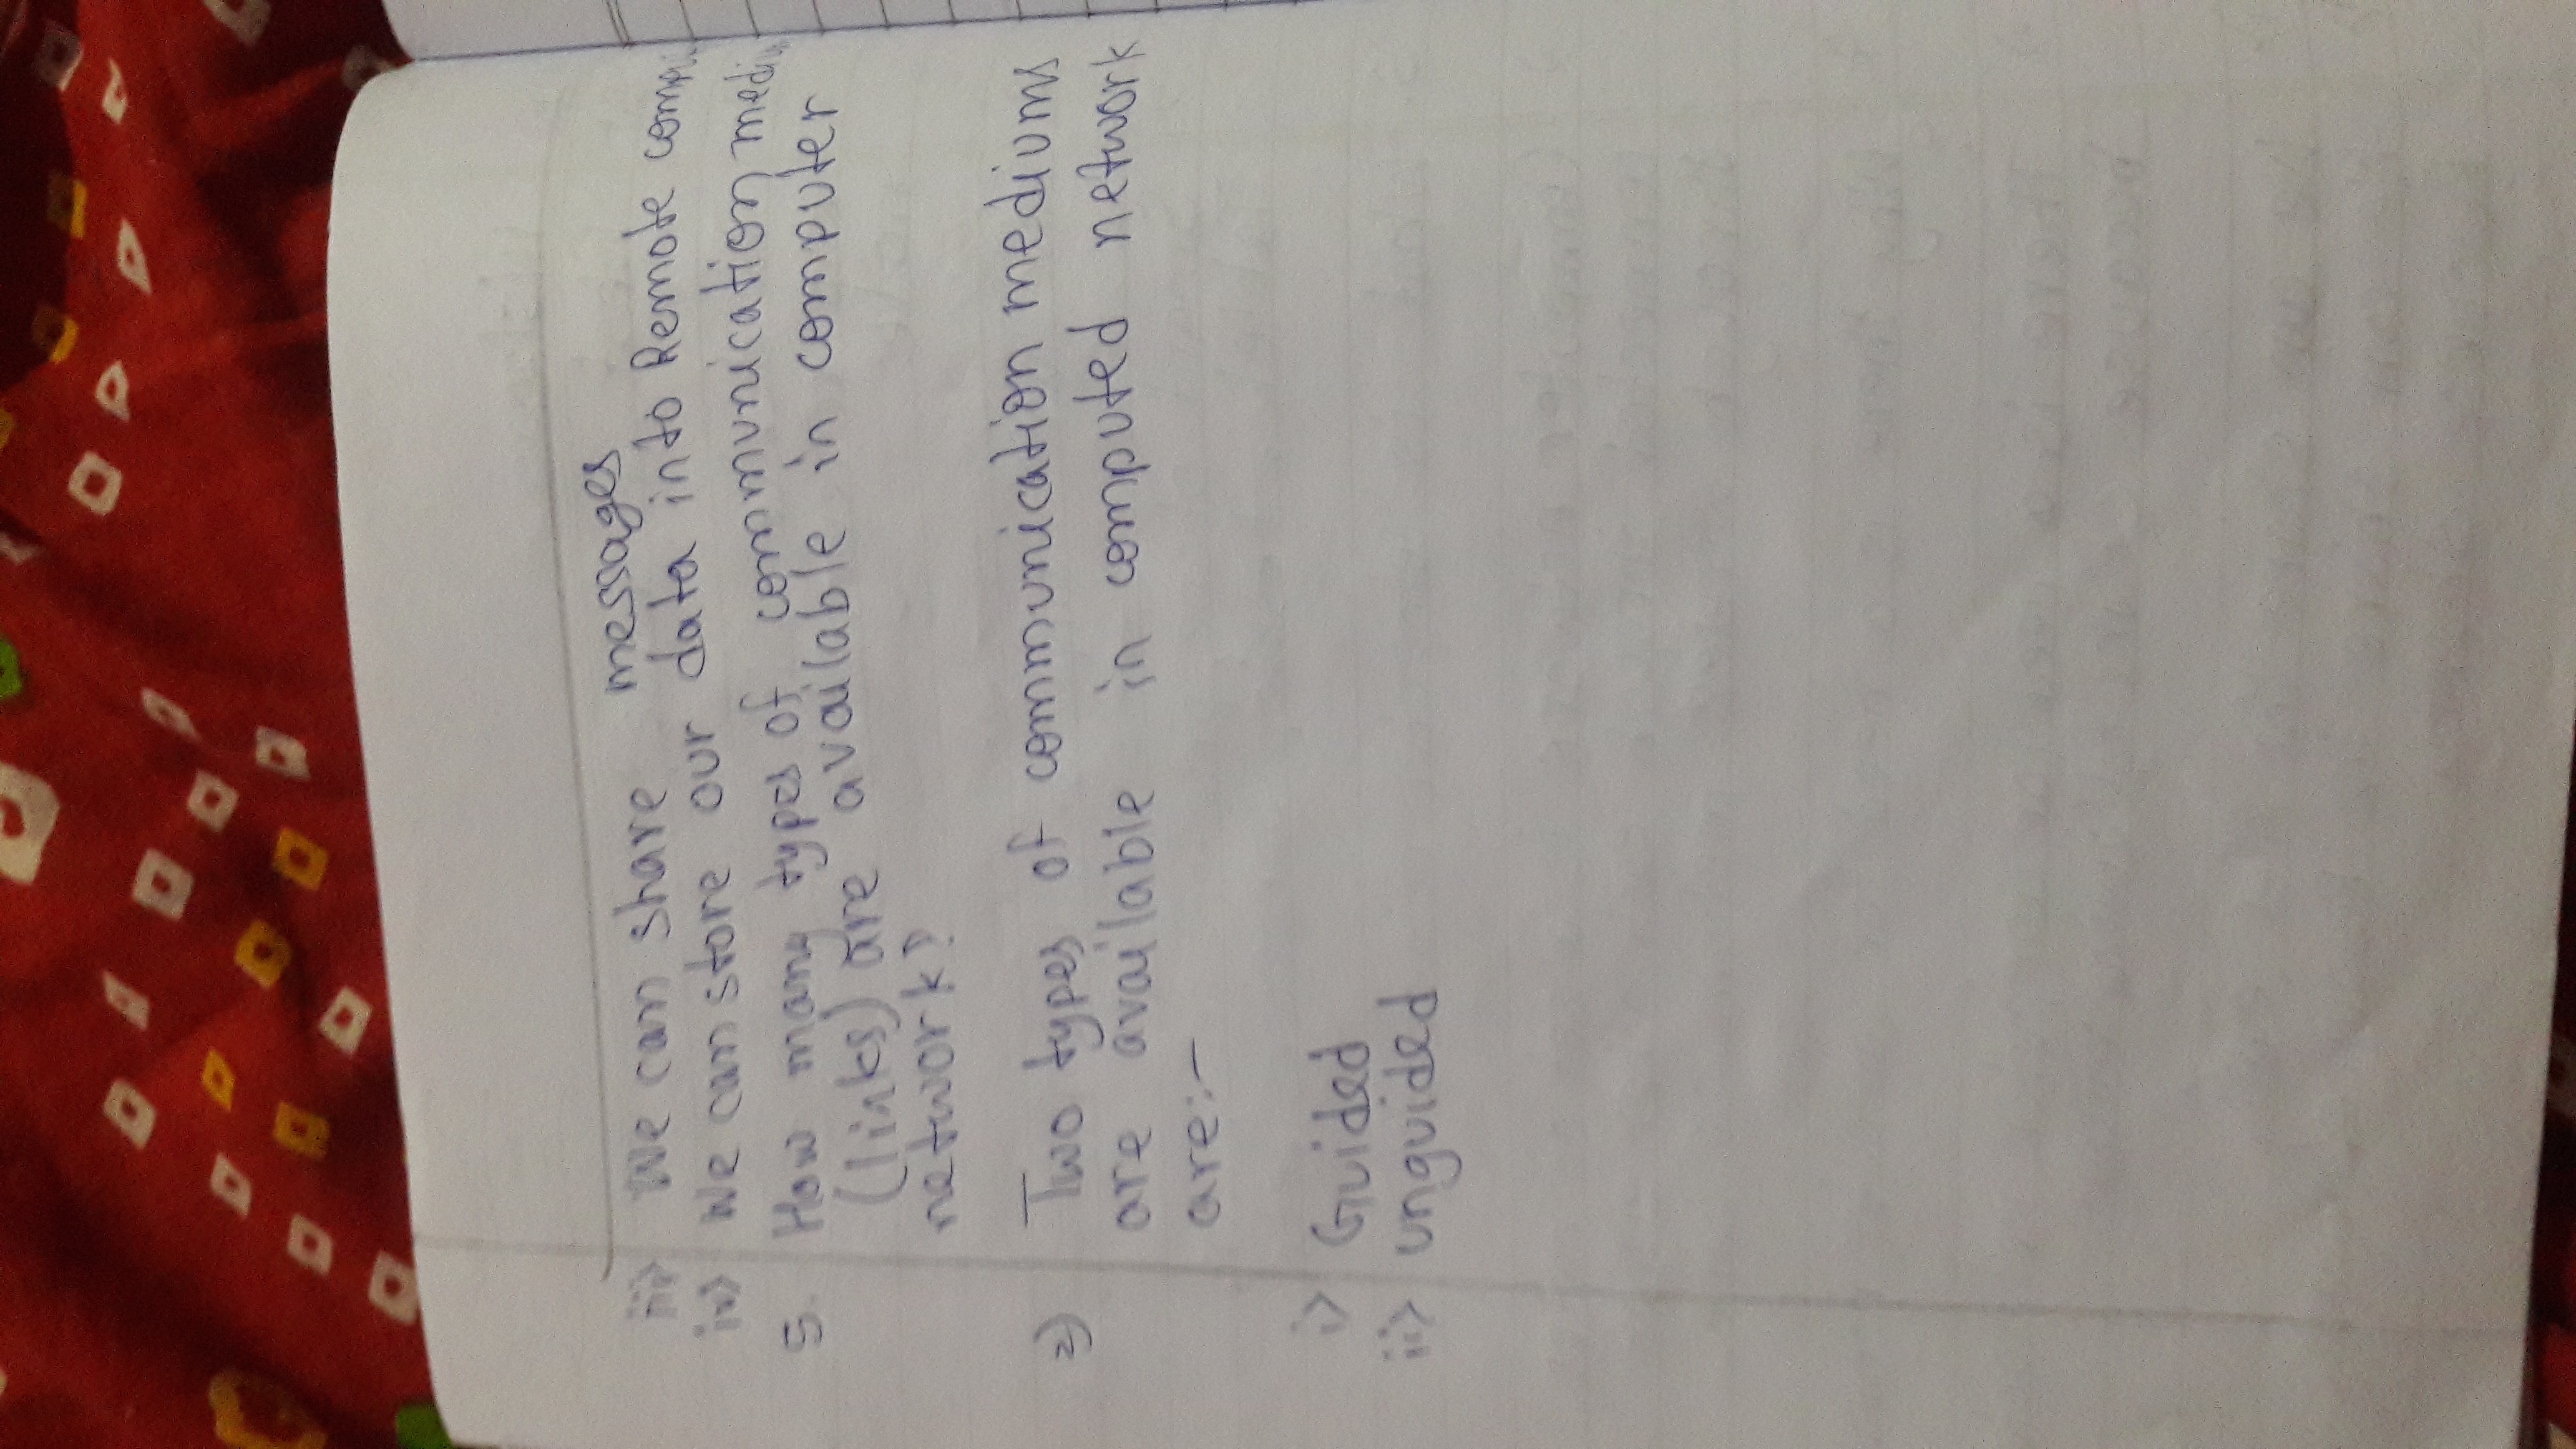 iii> We can share messages
iv> We can store our data into Remote
5. How many types of communication
(links) are available in computer
network?
⇒) Two types of communication mediums
are available in computed network
are:-
i> Guided
ii> unguided